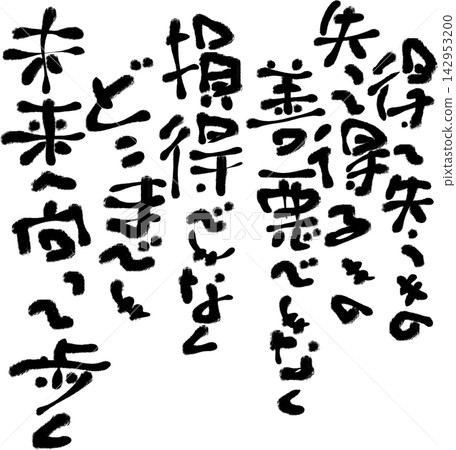 得て失うもの
失って得るもの
善の悪でもなく
損得でもなく
どこまでも
未来へ向って歩く
PIXTA
pixtastock.com - 142953200